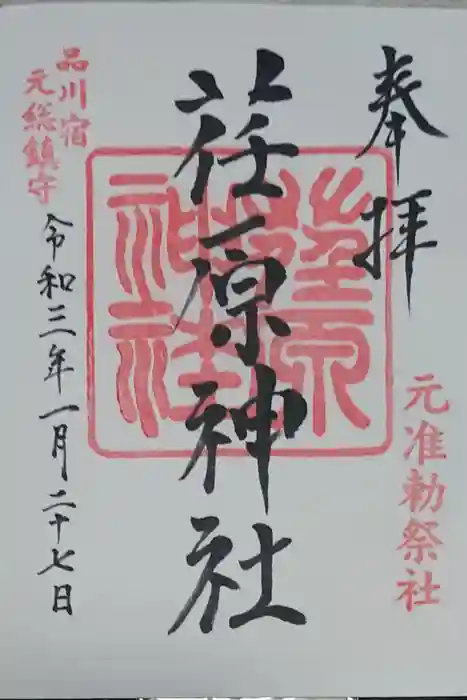 奉拝
元准勅祭社
荏原神社
荏原神社
品川宿
元総鎮守
令和三年一月二十七日